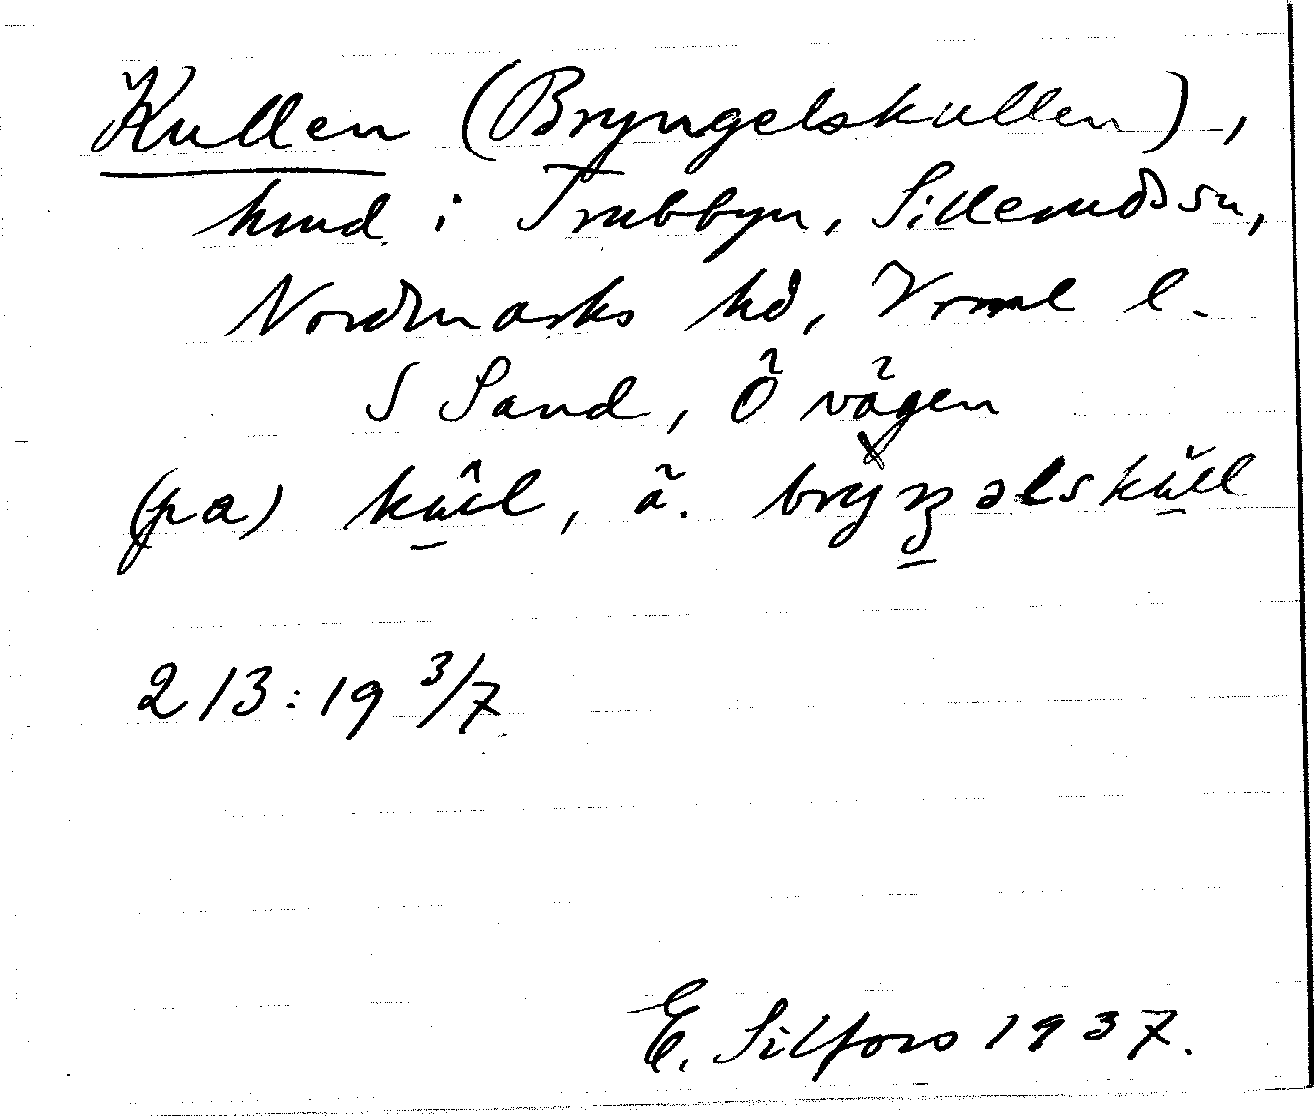 Kullen (Bryngelskullen),
hmd i Trubbyn, Sillerudssn,
Nordmarks hd, Vrml l.
S Sand, Ö vägen
(pa) kúll, ä. brýŋəlskùll
213:19 3/7
E. Silfors 1937.